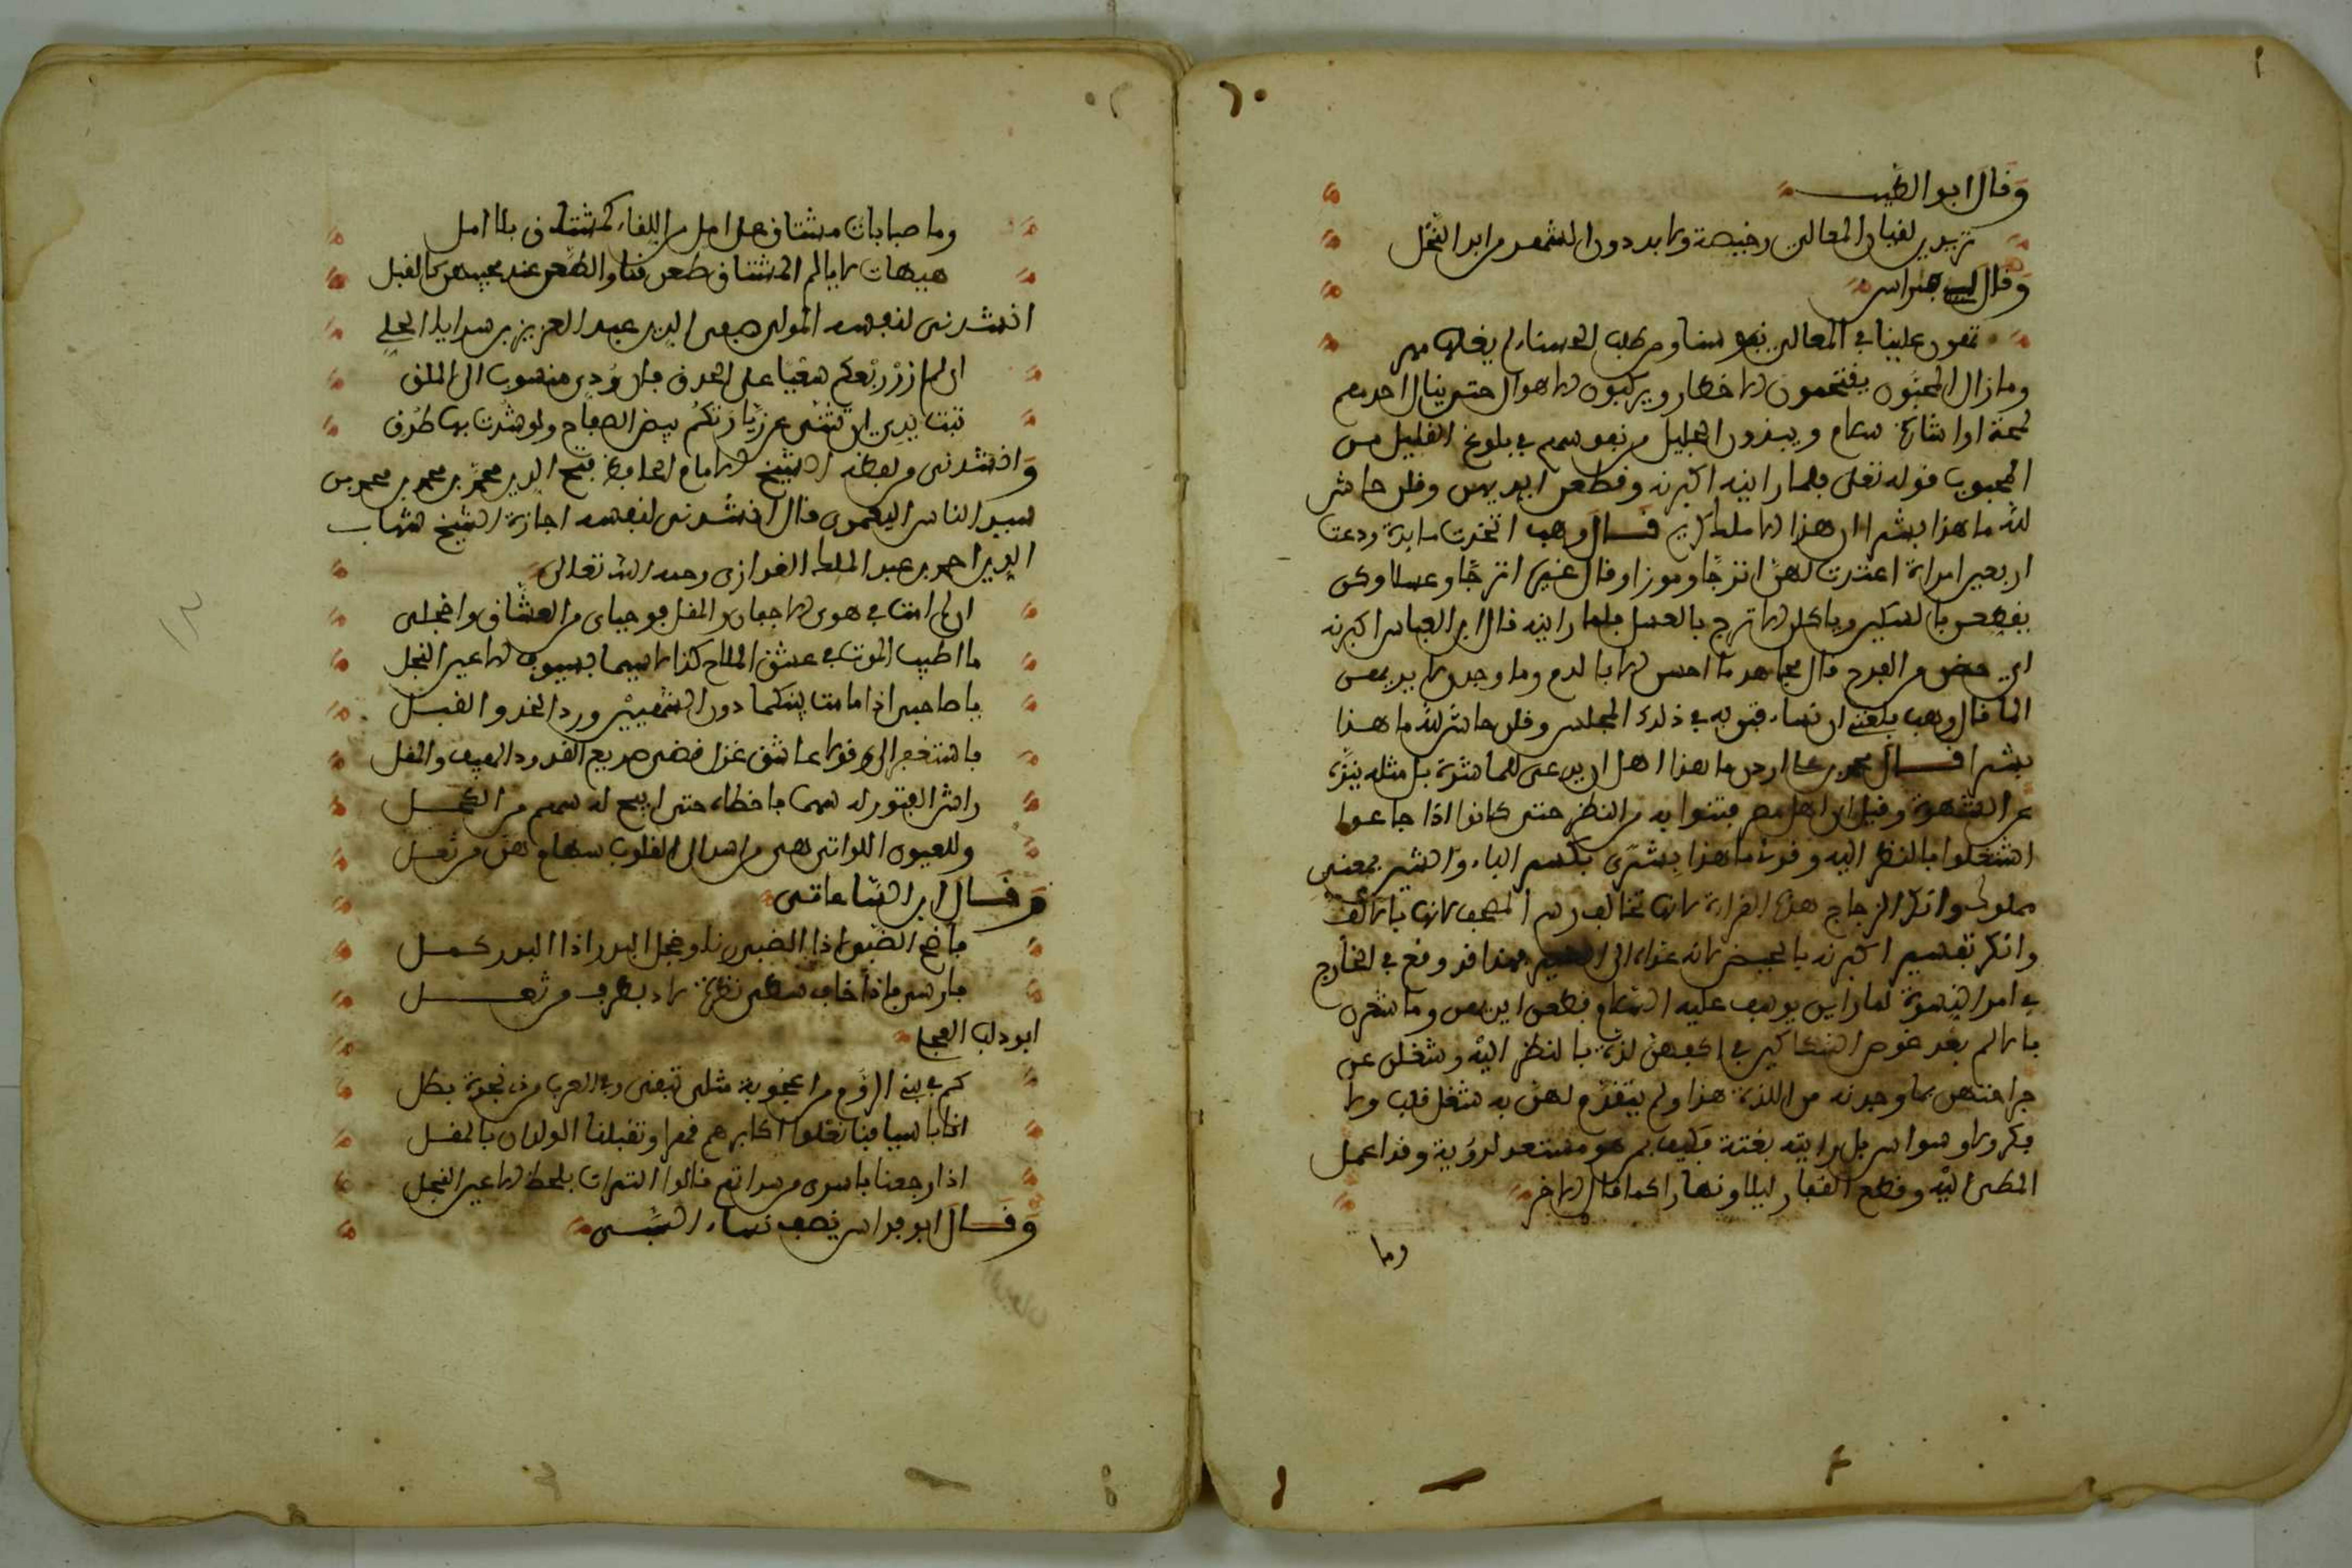 وقال ابو الطيب
تريدين لقيان المعالي رخيصة ولا بد دون الشهد من ابر النحل
وقال ابو فراس
تهون علينا في المعالي نفوسنا ومن طلب الحسناء لم يغلها مهر
وما زال المحبون يقتحمون الاخطار ويركبون الاهوال حتى ينال احدهم
لمحة او اشارة سلام ويبذرون الجليل من نفوسهم في بلوغ القليل من
المحبوب قوله تعلى فلما راينه اكبرنه وقطعن ايديهن وقلن حاش
لله ما هذا بشرا ان هذا الا ملك كريم قال وهب اتخذت مايدة ودعت
اربعين امراة اعتدت لهن اترجا وموزا وقال غيره اترجا وعسلا وكن
يقطعن بالسكين وياكلن الاترج بالعسل فلما راينه قال ابن العباس اكبرنه
اي حضن من الفرح قال مجاهد ما احسن الا بالدم وما وجدن لايديهن
الما قال وهب بلغني ان نساء فتن به في ذلك المجلس وقلن حاش لله ما هذا
بشرا قال محمد بن علي اردن ما هذا اهل ان يدعى للمباشرة بل مثله ينزه
عن الشهوة وقيل ان اهل مصر فتنوا به من النظر حتى كانوا اذا جاعوا
اشتغلوا بالنظر اليه وقرئ ما هذا بشرى بكسر الباء والشين بمعنى
مملوك وانكر الزجاج هذه القراءة لانها تخالف رسم المصحف لانها بالالف
وانكر تفسير اكبرنه بالحيض لانه عداه الى الضمير وهذا قد وقع في الخارج
في امر النسوة لما راين يوسف عليه السلام قطعن ايديهن وما شعرن
بالالم بعد غوص السكاكين في اكفهن لذة بالنظر اليه وشغلن عن
جراحتهن بما وجدنه من اللذة هذا ولم يتقدم لهن به شغل قلب ولا
فكر ولا وسواس بل راينه بغتة فكيف بمن هو مستعد لرؤية وقد اعمل
المطي اليه وقطع القفار ليلا ونهارا كما قال الاخر
وما
وما صبابات مشتاق على امل من اللقاء كمشتاق بلا امل
هيهات لا يالم المشتاق طعن قنا والطعن عند محبيهن كالقبل
انشدني لنفسه المولى صفي الدين عبد العزيز بن سرايا الحلي
ان لم ازر ربعكم سعيا على الحدق فان ودي منسوب الى الملق
تبت يدي ان ثنتني عن زيارتكم بيض الصفاح ولو سدت بها طرقي
وانشدني من لفظه الشيخ الامام الحافظ فتح الدين محمد بن محمد بن محمد بن
سيد الناس اليعمري قال انشدني لنفسه اجازة الشيخ شهاب
الدين احمد بن عبد الملك العزازي رحمه الله تعالى
ان لم امت في هوى الاجفان والمقل فوا حياي من العشاق واخجلي
ما اطيب الموت في عشق الملاح كذا لا سيما بسيوف الاعين النجل
يا صاحبي اذا ما مت بينكما دون الشفتين ورد الخد والقبل
فاستغفرا لي وقولا عاشق غزل قضى صريع القدود الهيف والمقل
راش الفتور له سهما فاخطاه حتى اتيح له سهم من الكحل
وللعيون اللواتي هن من اسد ال القلوب سهام هن من ثعل
وقال ابن الساعاتي
فاضح الضبي اذا الضبي رنا وخجل البدر اذا البدر كمل
فارس ماذا خاف سطى نظرة لاذ بطرف من ثعل
ابو دلف العجلي
كم في بني الروم من اعجوبة مثلي تبقى وفي العرب من نجدة بطل
انا باسيافنا نعلوا اكابرهم قهرا وتقبلنا الولدان بالمقل
اذا رجعنا باسرى من سراتهم نالوا الترات بلحظ الاعين النجل
وقال ابو فراس يصف نساء السبي